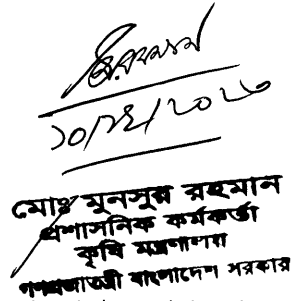 ১০/১২/২০২৩
মোঃ মুনসুর রহমান
প্রশাসনিক কর্মকর্তা
কৃষি মন্ত্রণালয়
গণপ্রজাতন্ত্রী বাংলাদেশ সরকার